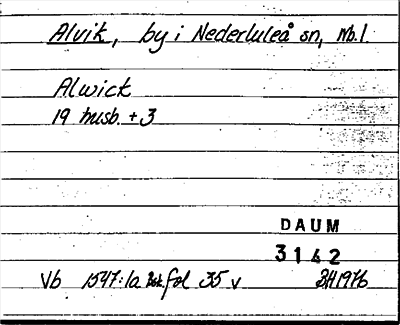 Alvik, by i Nederluleå sn, Nb.l.
Alwick
19 husb. + 3
DAUM
3142
Vb 1547:1a fol 35 v 1976